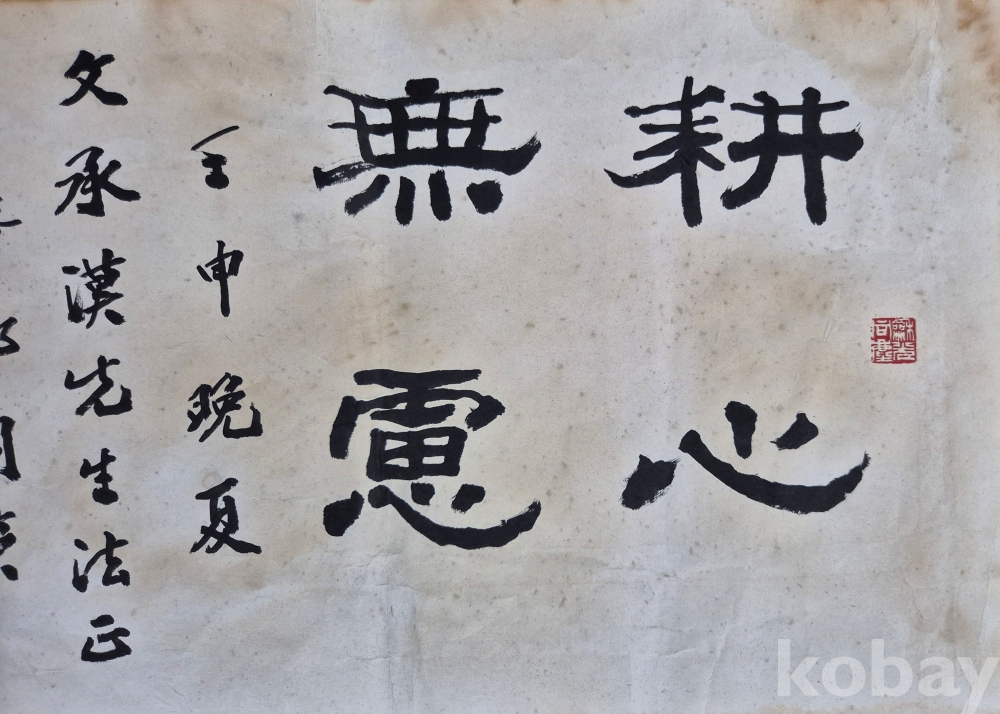 耕心
無慮
壬申晚夏
文承漢先生法正
kobay